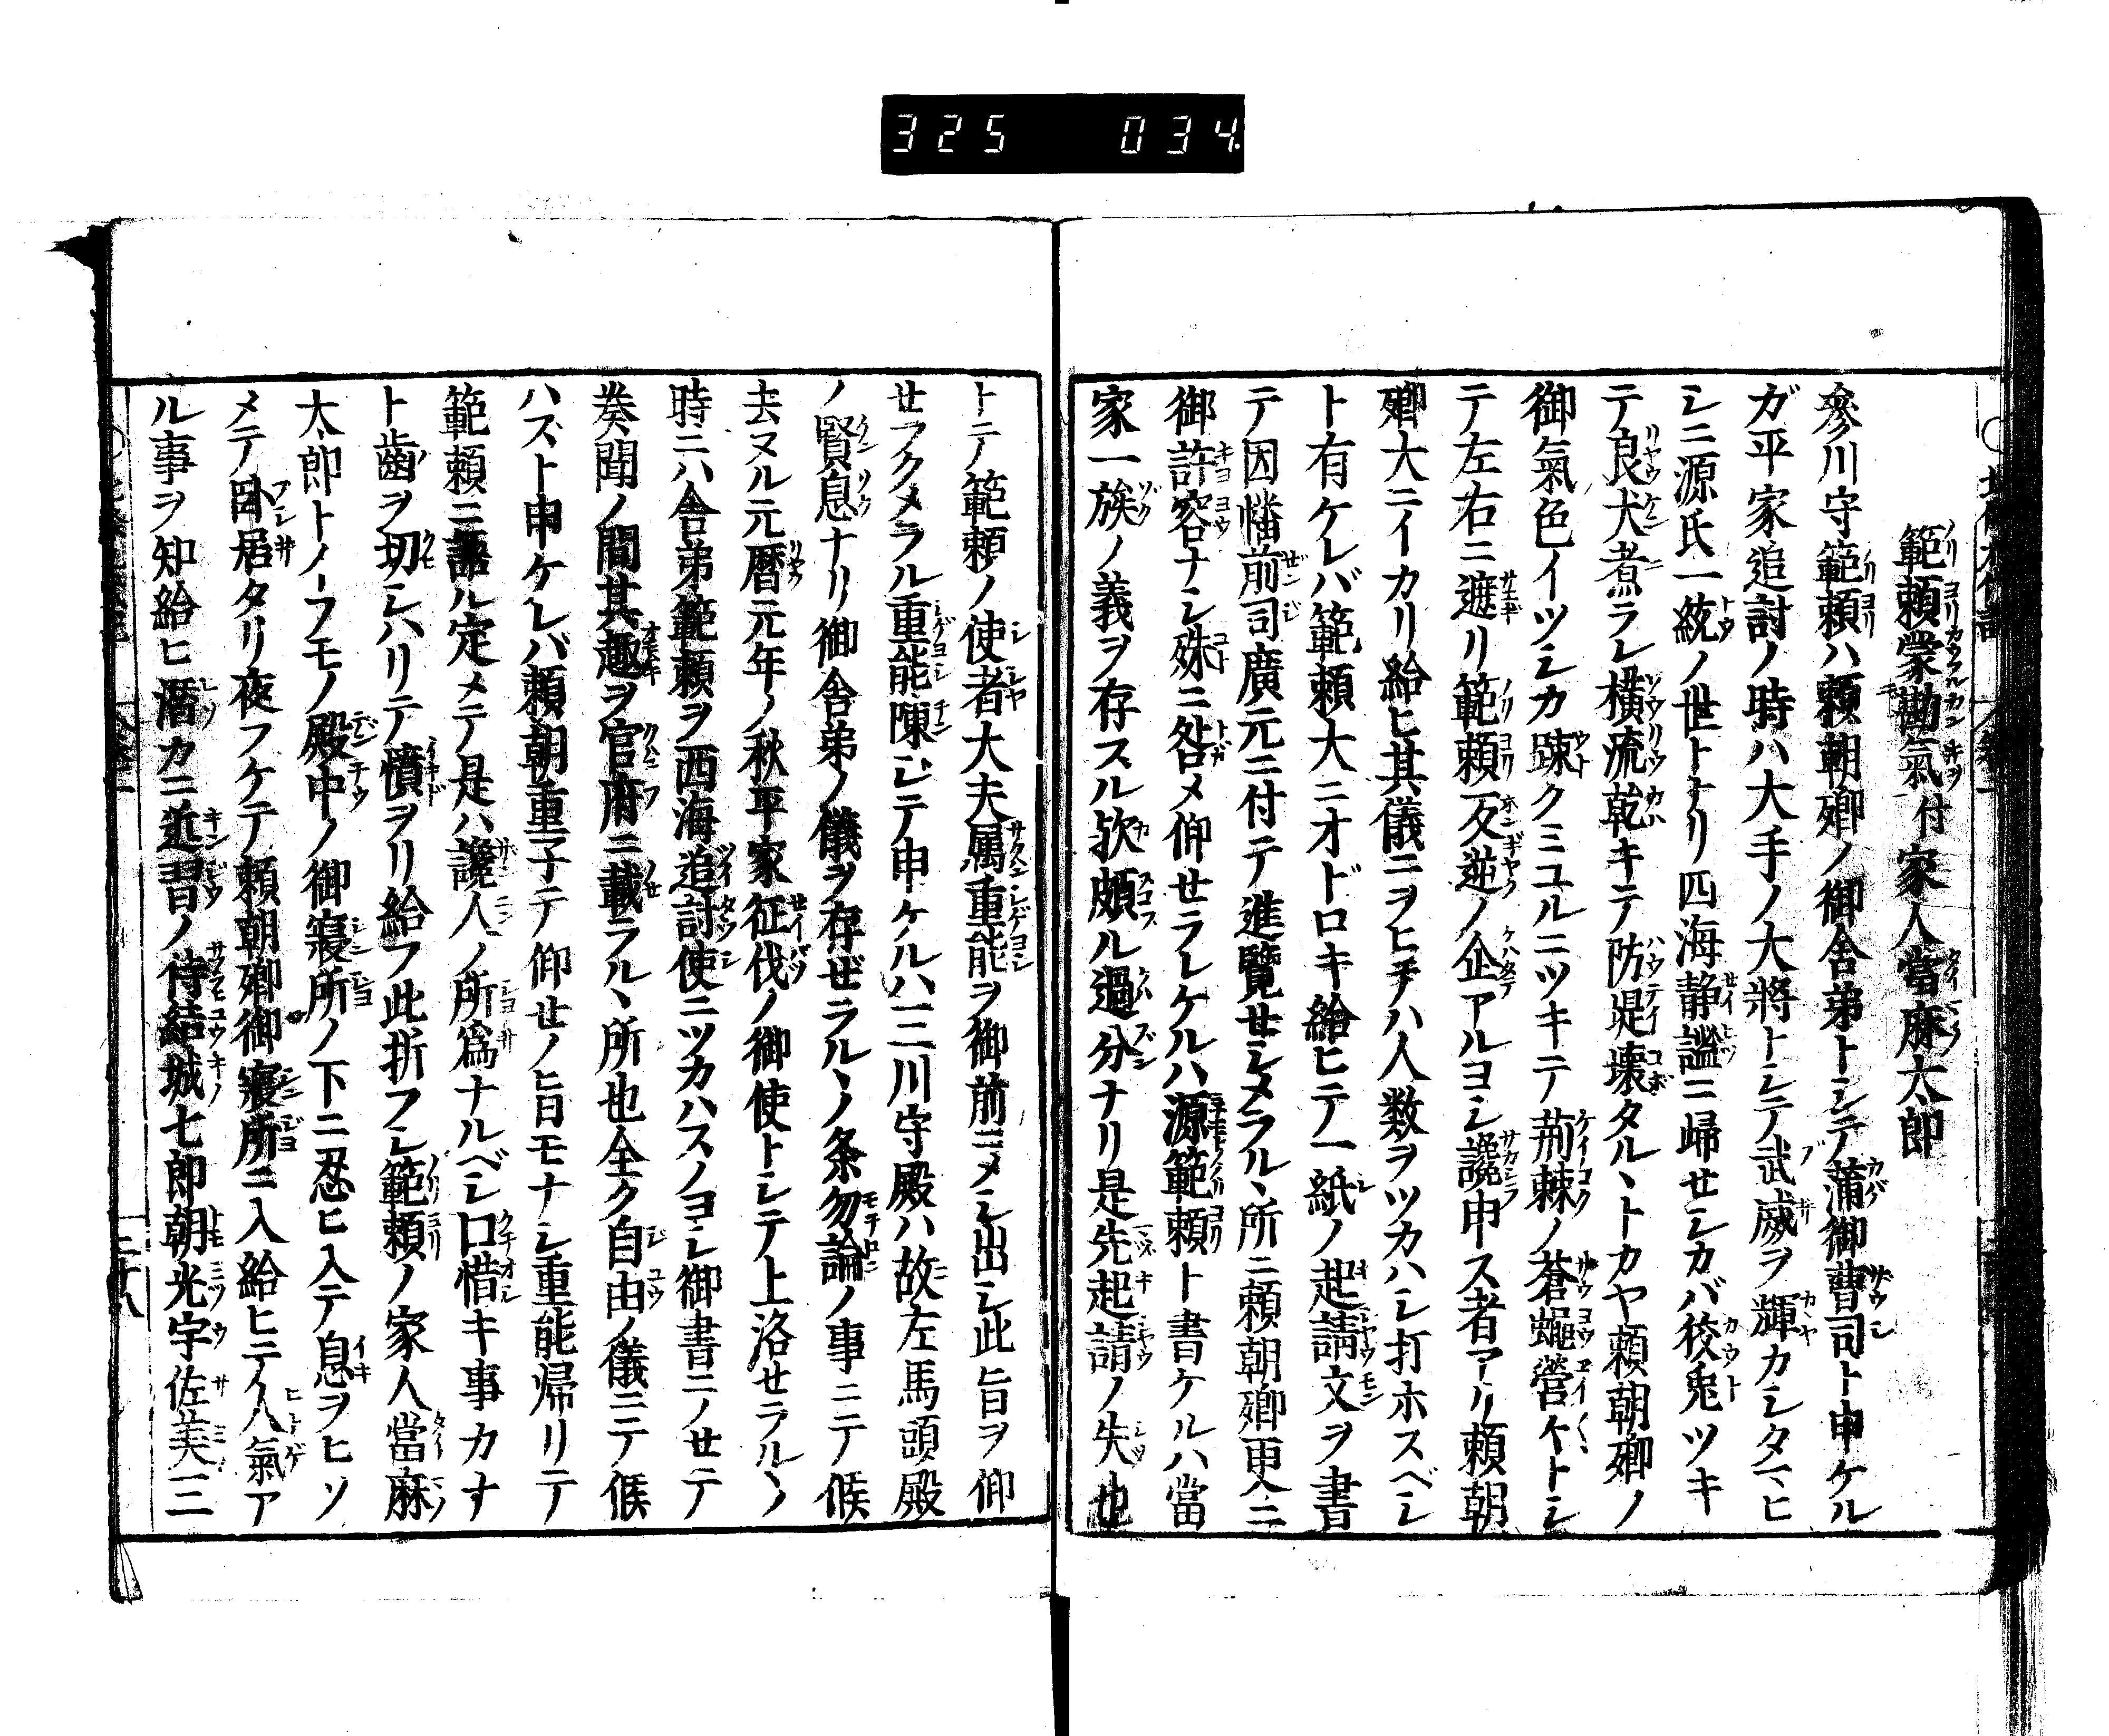 325 034
範頼蒙勘氣付家人當麻太郎
參川守範頼ハ頼朝卿ノ御舎弟トシテ蒲御曹司ト申ケル
ガ平家追討ノ時ハ大手ノ大將トシテ武威ヲ輝カシタマヒ
シニ源氏一統ノ世トナリ四海静謐ニ歸せシカバ狡兎ツキ
テ良犬煮ラレ横流乾キテ防堤壊タルヽトカヤ頼朝卿ノ
御氣色イツシカ踈クミユルニツキテ荊棘ノ蒼蠅營々トシ
テ左右ニ遮リ範頼反逆ノ企アルヨシ讒申ス者アリ頼朝
卿大ニイカリ給ヒ其儀ニヲヒテハ人数ヲツカハシ打ホスベシ
ト有ケレバ範頼大ニオドロキ給ヒテ一紙ノ起請文ヲ書
テ因幡前司廣元ニ付テ進覽せシメラルヽ所ニ頼朝卿更ニ
御許容ナシ殊ニ咎メ仰せラレケルハ源範頼ト書ケルハ當
家一族ノ義ヲ存スル欤頗ル過分ナリ是先起請ノ失也
トテ範頼ノ使者大夫属重能ヲ御前ニメシ出シ此旨ヲ仰
せフクメラル重能陳ジテ申ケルハ三川守殿ハ故左馬頭殿
ノ賢息ナリ御舎弟ノ儀ヲ存ぜラルヽノ条勿論ノ事ニテ候
去ヌル元暦元年ノ秋平家征伐ノ御使トシテ上洛せラルヽノ
時ニハ舎弟範頼ヲ西海追討使ニツカハスノヨシ御書ニノせテ
奏聞ノ間其趣ヲ官府ニ載ラルヽ所也全ク自由ノ儀ニテ候
ハズト申ケレバ頼朝重子テ仰せノ旨モナシ重能帰リテ
範頼ニ語ル定メテ是ハ讒人ノ所爲ナルベシ口惜キ事カナ
ト齒ヲ切シハリテ憤ヲリ給フ此折フシ範頼ノ家人當麻
太郎トノーフモノ殿中ノ御寢所ノ下ニ忍ヒ入テ息ヲヒソ
メテ卧居タリ夜フケテ頼朝卿御寢所ニ入給ヒテ人氣ア
ル事ヲ知給ヒ潜カニ近習ノ侍結城七郎朝光宇佐美三
二十八